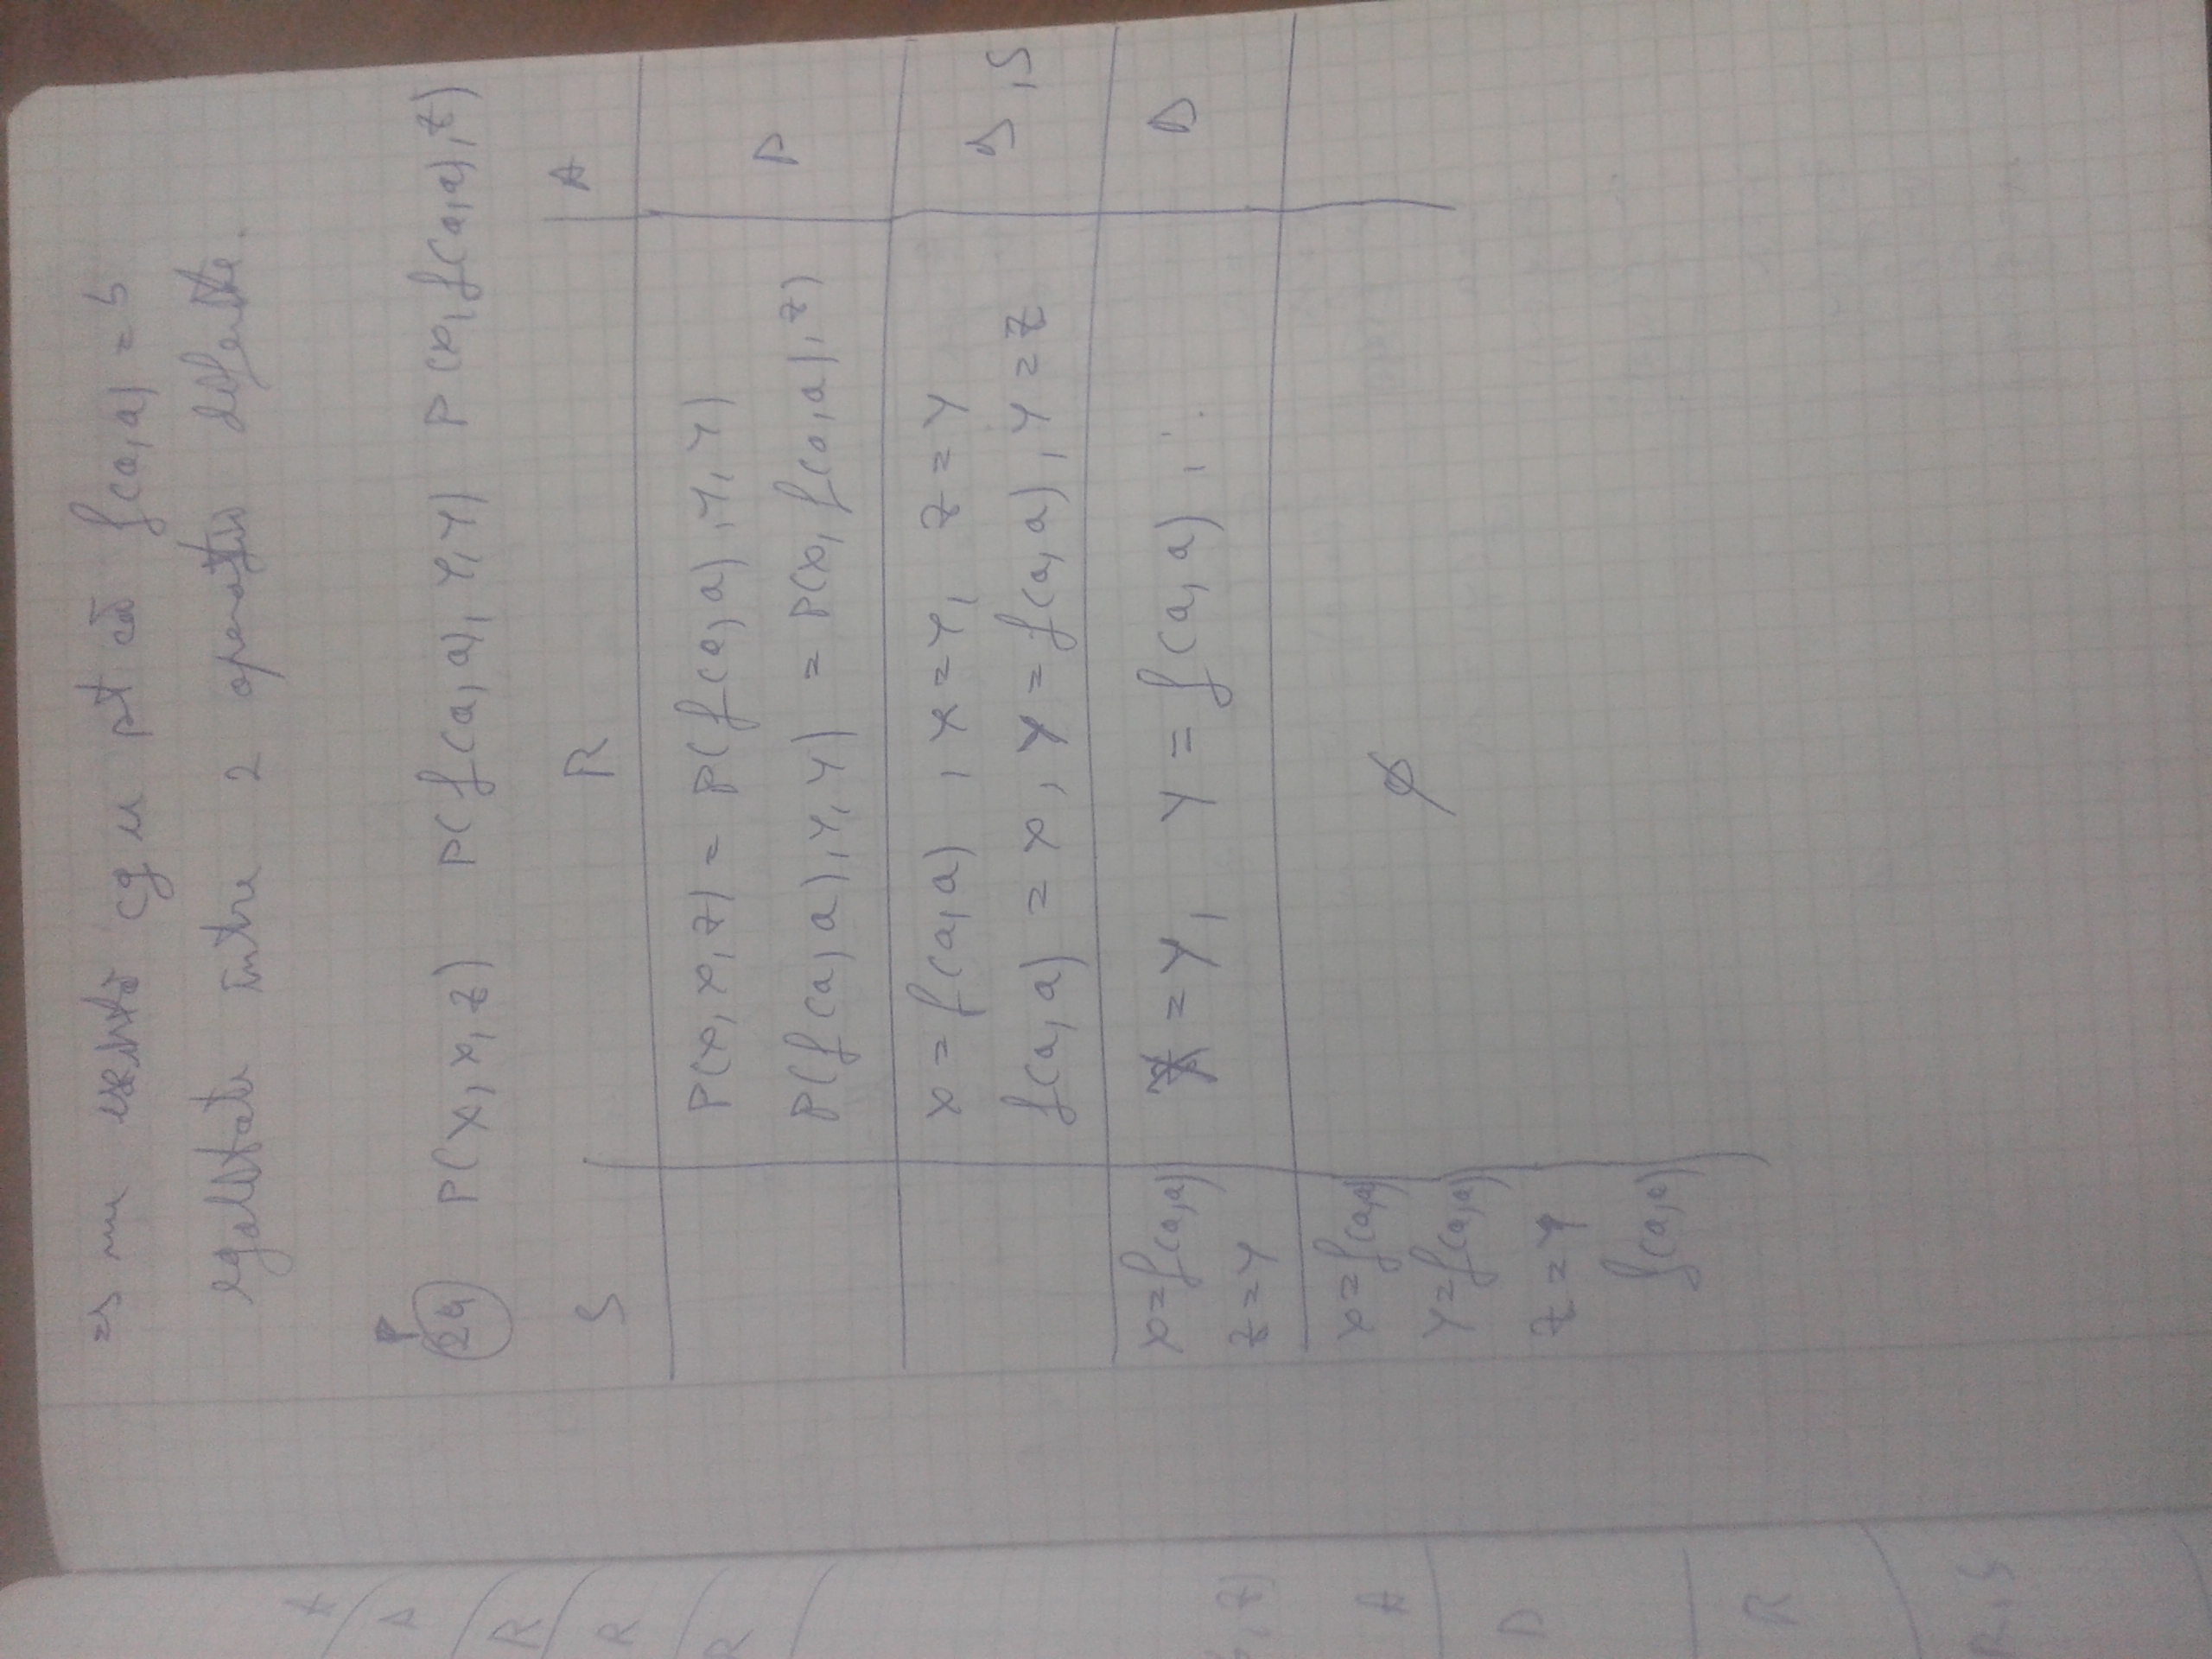 => nu există cgu pt că f(a,a) = b
egalitate între 2 operații diferite.
P
24 P(x,x,z) P(f(a,a),y,y) P(x,f(a,a),z)
S R A
P(x,x,z) = P(f(a,a),y,y)
P(f(a,a),y,y) = P(x,f(a,a),z)
D
x = f(a,a) , x = y, z = y
f(a,a) = x, y = f(a,a), y = z
D,S
x = f(a,a)
z = y
= y, y = f(a,a),
D
x = f(a,a)
y = f(a,a)
z = y
f(a,a)
∅
A
D
R
R
R
, z)
A
D
R
R,S